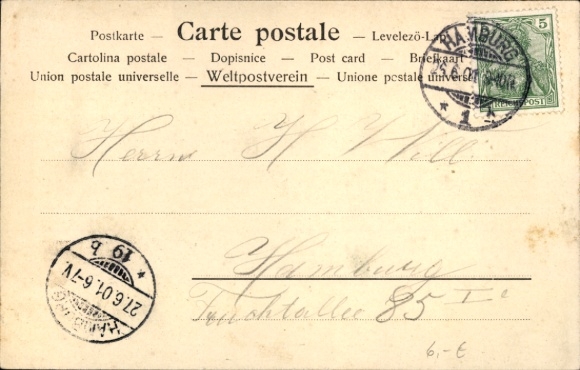 Postkarte – Carte postale – Levelezö-Lap
Cartolina postale – Dopisnice – Post card – Briefkaart
Union postale universelle – Weltpostverein – Unione postale univers
5
REICHSPOST
HAMBURG
26.6.01
* 1 *
Herrn H Will
Hamburg
Fruchtallee 85 I
HAMBURG
27.6.01.6-7V.
* 19 b *
6,- €